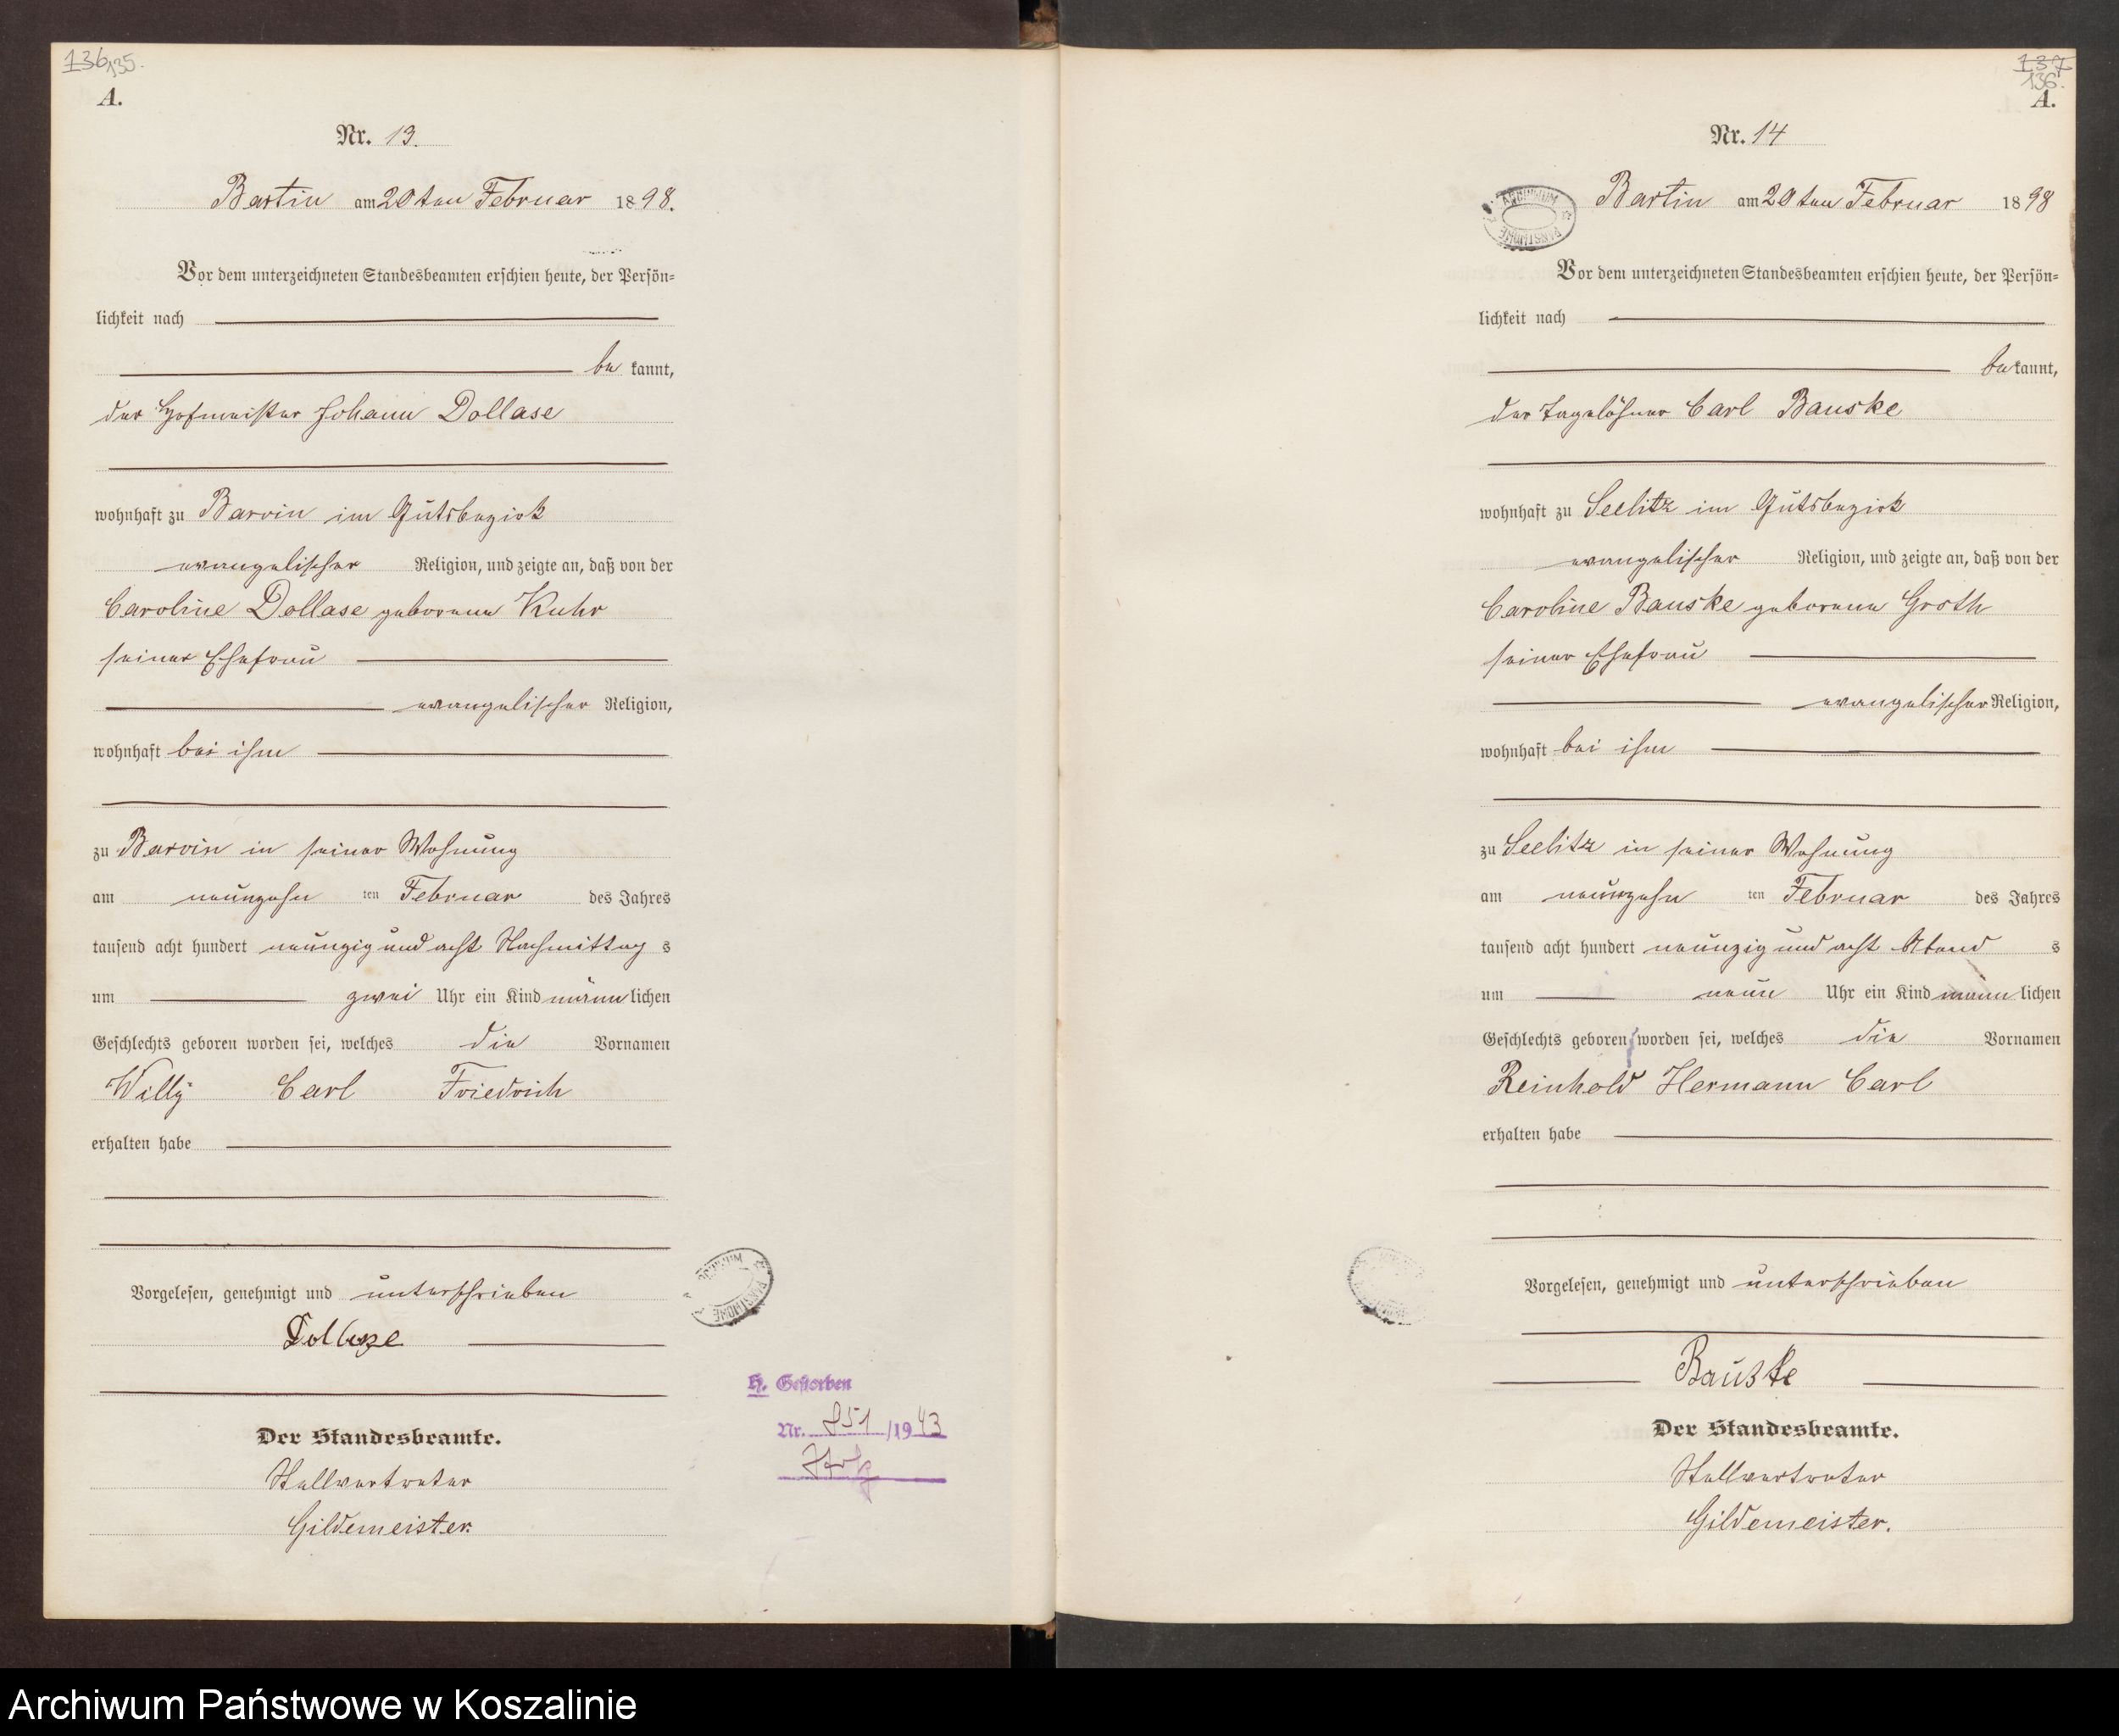 136 135.
A.
Nr. 13.
Bartin am 20ten Februar 1898.
Vor dem unterzeichneten Standesbeamten erschien heute, der Persön=
lichkeit nach
be kannt,
der Hofmeister Johann Dollase
wohnhaft zu Barvin im Gutsbezirk
evangelischer Religion, und zeigte an, daß von der
Caroline Dollase geborene Kuhr
seiner Ehefrau
evangelischer Religion,
wohnhaft bei ihm
zu Barvin in seiner Wohnung
am neunzehn ten Februar des Jahres
tausend acht hundert neunzig und acht Nachmittag s
um zwei Uhr ein Kind männlichen
Geschlechts geboren worden sei, welches die Vornamen
Willy Carl Friedrich
erhalten habe
Vorgelesen, genehmigt und unterschrieben
Dollase
Der Standesbeamte.
Stellvertreter
Gildemeister.
ARCHIWUM PAŃSTWOWE
H. Gestorben
Nr. 851 /1943
137
136.
A.
Nr. 14
ARCHIWUM PAŃSTWOWE
Bartin am 20ten Februar 1898
Vor dem unterzeichneten Standesbeamten erschien heute, der Persön=
lichkeit nach
bekannt,
der Tagelöhner Carl Bauske
wohnhaft zu Seelitz im Gutsbezirk
evangelischer Religion, und zeigte an, daß von der
Caroline Bauske geborene Groth
seiner Ehefrau
evangelischer Religion,
wohnhaft bei ihm
zu Seelitz in seiner Wohnung
am neunzehn ten Februar des Jahres
tausend acht hundert neunzig und acht Abend s
um neun Uhr ein Kind männlichen
Geschlechts geboren worden sei, welches die Vornamen
Reinhold Hermann Carl
erhalten habe
Vorgelesen, genehmigt und unterschrieben
Bauske
Der Standesbeamte.
Stellvertreter
Gildemeister.
Archiwum Państwowe w Koszalinie